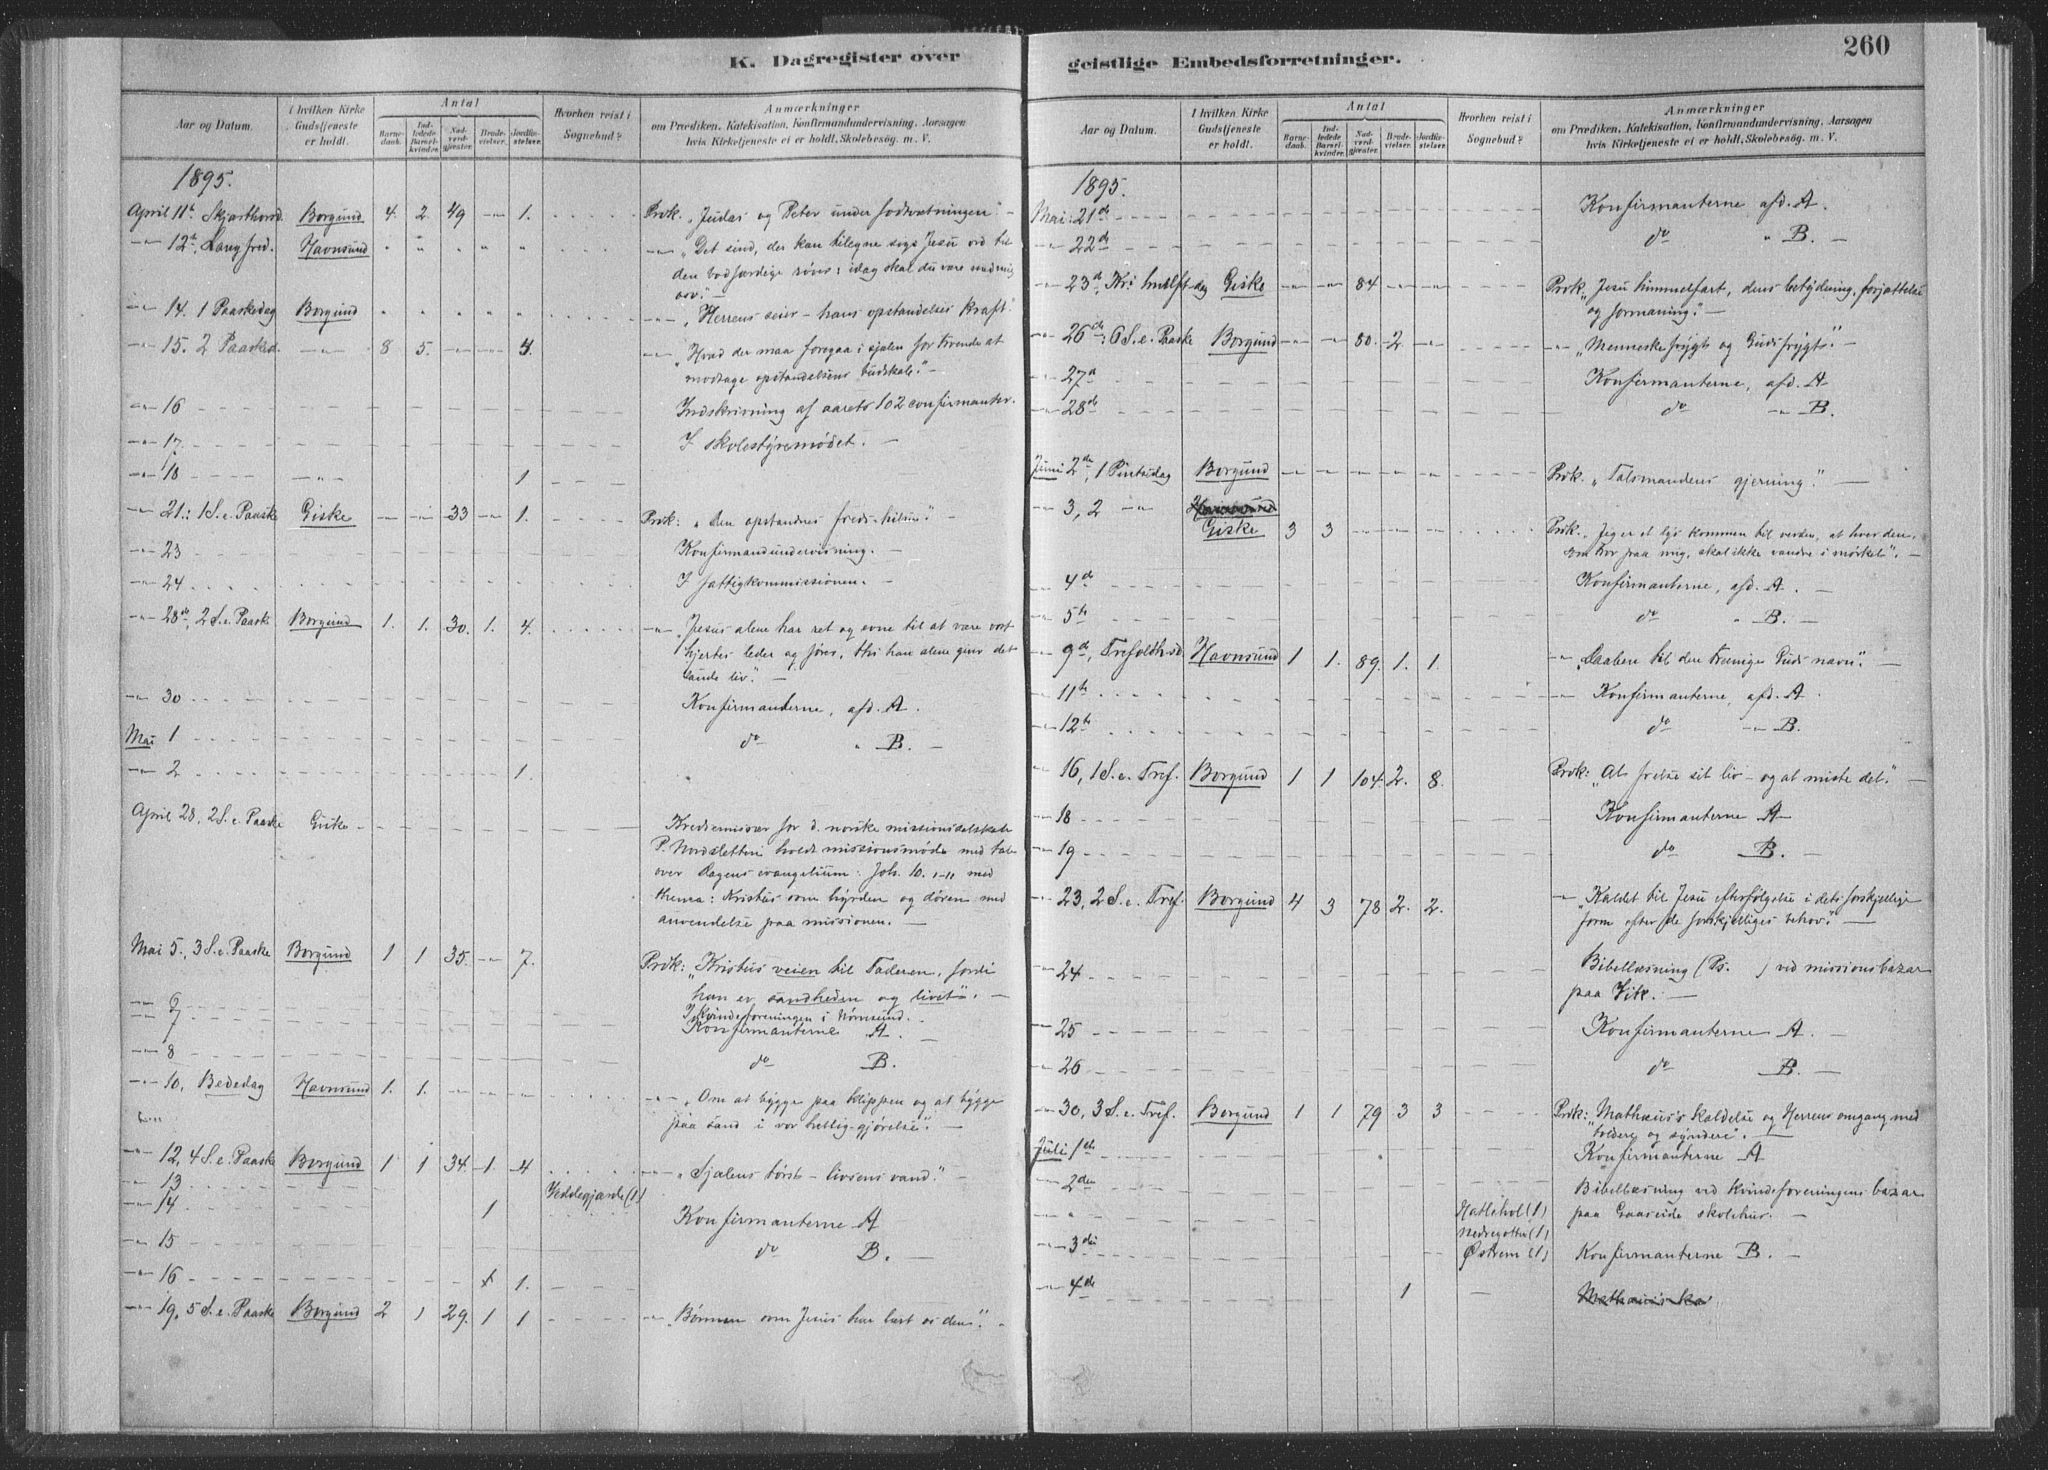 K. Dagregister over
Aar og Datum.
i hvilken Kirke Gudstjeneste er holdt.
Antal
Barnedaab.
Indledede Barselkvinder.
Nadverdgjester.
Brudevielser.
Jordfæstelser.
Hvorhen reist i Sognebud?
Anmærkninger
om Prædiken, Katekisation, Konfirmandundervisning, Aarsagen
hvis Kirketjeneste ei er holdt, Skolebesög. m. V.
1895.
April 11te Skjærthorsd. Borgund 4. 2. 49 - 1. Præk. "Judas og Peter under fodtvætningen". -
-"- 12te Langfred. Havnsund " " " " " -"- "Det sind, der kan tilegne sig Jesu ord til
den bodfærdige røver: idag skal du være med mig
osv." -
-"- 14. 1 Paaskedag Borgund " " " " " -"- "Herrens seier - hans opstandelses kraft".
-"- 15. 2 Paasked. -"- 8 5. - - 4. -"- "Hvad der maa foregaa i sjælen for troende at
modtage opstandelsens budskab." -
-"- 16 Indskrivning af aarets 102 confirmanter.
-"- 17. I skolestyremødet. -
-"- 18 -"- 1
-"- 21: 1 S. e. Paaske Giske - - 33 - 1. Præk: "Den opstandnes freds-hilsen". -
-"- 23 Konfirmandundervisning. -
-"- 24 I fattigkommissionen. -
-"- 28de, 2 S. e. Paaske Borgund 1. 1. 30. 1. 4. -"- "Jesus alene har ret og evne til at være vort
hjertes leder og fører, thi han alene giver det
sande liv". -
-"- 30 Konfirmanterne, afd. A.
Mai 1 do " B. -
-"- 2 1.
April 28, 2 S. e. Paaske Giske - Kredsemissær for d. norske missionsselskab
P. Nordsletten holdt missionsmøde med tale
over dagens evangelium: Joh. 10. 1-11 med
thema: Kristus som hyrden og døren med
anvendelse paa missionen. -
Mai 5., 3 S. e. Paaske Borgund 1 1 35. - 7. Præk: "Kristus veien til Faderen, fordi
han er sandheden og livet". -
-"- 6 I kvindeforeningen i Nørvesund.
-"- 7 Konfirmanterne A.
-"- 8 do B.
-"- 10, Bededag Havnsund 1. 1. - - - -"- "Om at bygge paa klippen og at bygge
paa sand i vor hellig-gjørelse". -
-"- 12, 4 S. e. Paaske Borgund 1 1 34. 1. 4 -"- "Sjælens tørst - livsens vand".
-"- 13 Veddegjærde (1)
-"- 14 1 Konfirmanterne A
-"- 15 do B. -
-"- 16 1.
-"- 19, 5 S. e. Paaske Borgund 2 1 29. 1 1 -"- "Bønnen som Jesus har lært os den". -
geistlige Embedsforretninger.
260
Aar og Datum.
I hvilken Kirke Gudstjeneste er holdt.
Antal
Barnedaab.
Indledede Barselkvinder.
Nadverdgjester.
Brudevielser.
Jordfæstelser.
Hvorhen reist i Sognebud?
Anmærkninger
om Prædiken, Katekisation, Konfirmandundervisning, Aarsagen
hvis Kirketjeneste ei er holdt, Skolebesög. m. V.
1895.
Mai: 21de Konfirmanterne, afd. A.
-"- 22de do " B. -
-"- 23de, Kr: himlft-dag Giske - - 84 - - Præk. "Jesu himmelfart, dens betydning, forjættelse
og formaning". -
-"- 26de: 6 S. e. Paaske Borgund - - 80. 2. - -"- "Menneskefrygt og Gudsfrygt". -
-"- 27de Konfirmanterne, afd. A
-"- 28de do -"- B.
Juni 2den, 1 Pintsedag Borgund - - - - - Præk. "Talsmandens gjerning." -
-"- 3, 2 -"- Giske 3 3 - - - Præk. "Jeg er et lys kommen til verden, at hver den,
som tror paa mig, skal ikke vandre i mørket". -
-"- 4de Konfirmanterne, afd. A.
-"- 5te do " B. -
-"- 9de, Trefoldh.sd Havnsund 1 1. 89. 1. 1. -"- "Daaben til den treenige Guds navn". -
-"- 11te -"- Konfirmanterne, afd. A.
-"- 12te do -"- B.
-"- 16, 1 S. e. Tref. Borgund 1 1 104. 2. 8. Præk: "At frelse sit liv - og at miste det." -
-"- 18 Konfirmanterne A
-"- 19 do B. -
-"- 23, 2 S. e. Tref. Borgund 4 3 78 2. 2. -"- "Kaldet til Jesu efterfølgelse i dets forskjellige
form efter de forskjelliges behov". -
-"- 24 Bibellæsning (Ps. ) ved missionsbazar
paa Vik. -
-"- 25 Konfirmanterne A.
-"- 26 do B. -
-"- 30, 3 S. e. Tref. Borgund 1 1 79 3 3 Præk: "Mathæus's kaldelse og Herrens omgang med
toldere og syndere". -
Juli 1ste Konfirmanterne A
-"- 2den Bibellæsning ved kvindeforeningens bazar
-"- " Hatlehol (1) paa Gaaseide skolehus. -
Nedregotten (1)
-"- 3die Østrem (1) Konfirmanterne B. -
-"- 4de 1 - Mathæus's ka